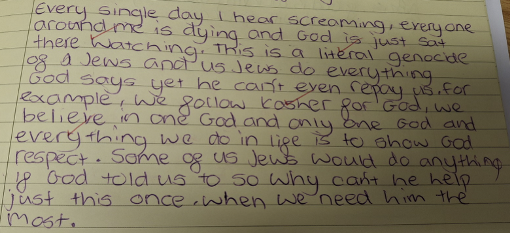 Every single day I hear screaming, everyone
around me is dying and God is just sat
there watching. This is a literal genocide
of a Jews and us Jews do everything
God says yet he can't even repay us. for
example, we follow kosher for God, we
believe in one God and only one God and
everything we do in life is to show God
respect. Some of us Jews would do anything
if God told us to so why can't he help
just this once, when we need him the
most.